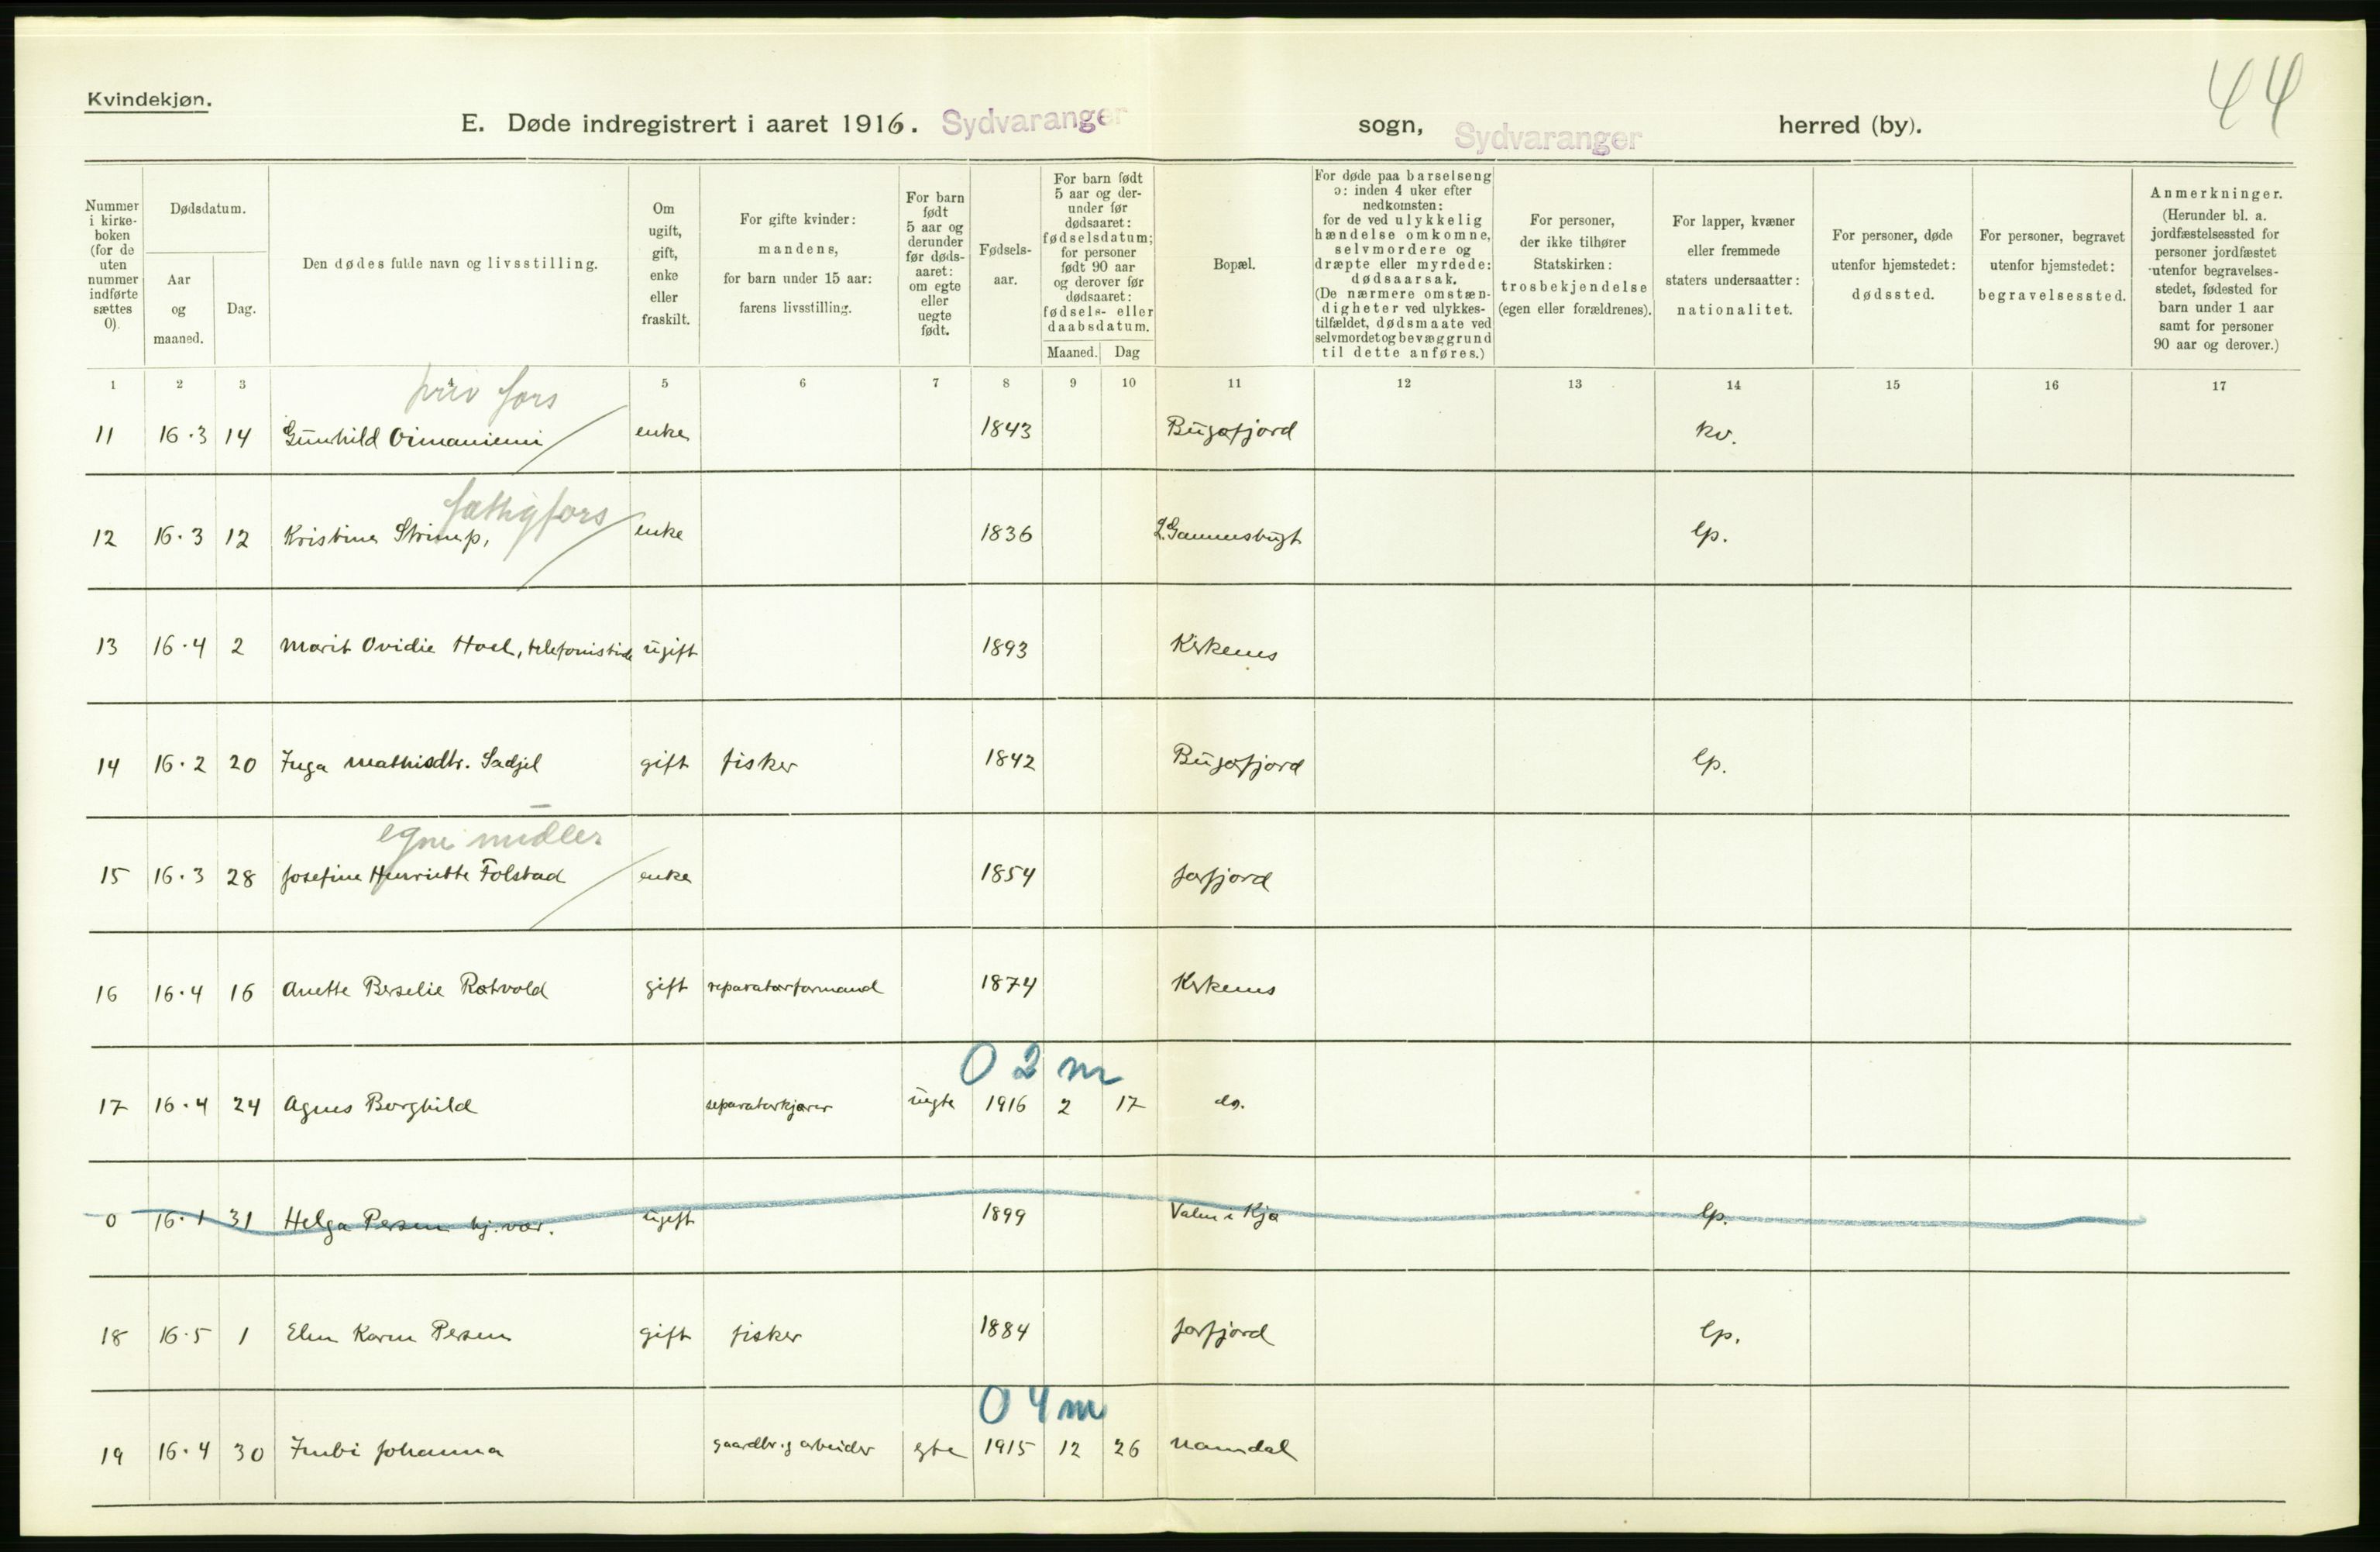 44
Kvindekjøn.
E. Døde indregistrert i aaret 1916. Sydvaranger sogn, Sydvaranger herred (by).
Nummer i kirke-boken (for de uten nummer indførte sættes 0).
Dødsdatum.
Aar og maaned.
Dag.
Den dødes fulde navn og livsstilling.
Om ugift, gift, enke eller fraskilt.
For gifte kvinder: mandens, for barn under 15 aar: farens livsstilling.
For barn født 5 aar og derunder før døds-aaret: om egte eller uegte født.
Fødsels-aar.
For barn født 5 aar og der-under før dødsaaret: fødselsdatum; for personer født 90 aar og derover før dødsaaret: fødsels- eller daabsdatum.
Maaned. Dag
Bopæl.
For døde paa barselseng ɔ: inden 4 uker efter nedkomsten: for de ved ulykkelig hændelse omkomne, selvmordere og dræpte eller myrdede: dødsaarsak. (De nærmere omstæn-digheter ved ulykkes-tilfældet, dødsmaate ved selvmordet og bevæggrund til dette anføres.)
For personer, der ikke tilhører Statskirken: trosbekjendelse (egen eller forældrenes).
For lapper, kvæner eller fremmede staters undersaatter: nationalitet.
For personer, døde utenfor hjemstedet: dødssted.
For personer, begravet utenfor hjemstedet: begravelsessted.
Anmerkninger. (Herunder bl. a. jordfæstelsessted for personer jordfæstet utenfor begravelses-stedet, fødested for barn under 1 aar samt for personer 90 aar og derover.)
1 2 3 4 5 6 7 8 9 10 11 12 13 14 15 16 17
priv fors
11 16.3 14 Gunhild Oimaniemi enke 1843 Bugøfjord kv.
fattigfors
12 16.3 12 Kristine enke 1836 lp.
13 16.4 2 Marit Ovidie Hoel, telefonistinde ugift 1893 Kirkenes
14 16.2 20 Inga Mathisdtr. Sadjel gift fisker 1842 Bugøfjord lp.
egne midler
15 16.3 28 Josefine Henriette Folstad enke 1854 Jarfjord
16 16.4 16 Anette Berselie Rotvold gift reparatørformand 1874 Kirkenes
0 2 m
17 16.4 24 Agnes Borghild separatorkjører uegte 1916 2 17 do.
0 16.1 31 Helga Persen hj. vær. ugift 1899 lp.
18 16.5 1 Elen Karen Persen gift fisker 1884 Jarfjord lp.
0 4 m
19 16.4 30 Johanna gaardbr. og arbeider egte 1915 12 26 Namdal